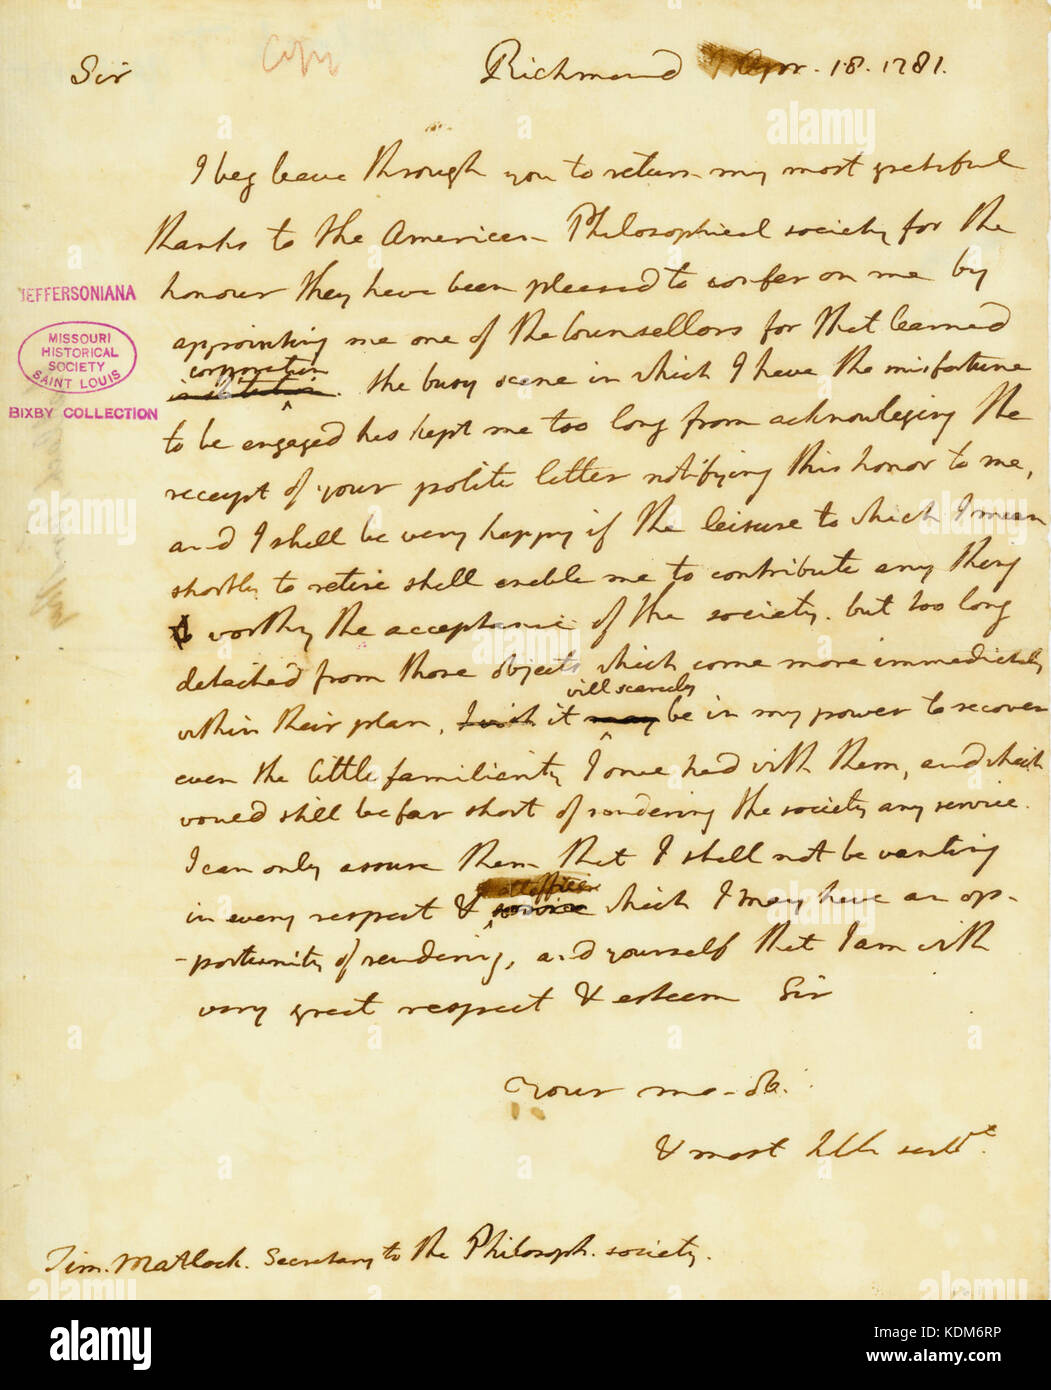 Copy
Sir Richmond Apr. 18. 1781.
I beg leave through you to return my most grateful
thanks to the American Philosophical society for the
honour they have been pleased to confer on me by
appointing me one of the Counsellors for that learned
corporation
institution. the busy scene in which I have the misfortune
to be engaged has kept me too long from acknowleging the
receipt of your polite letter notifying this honor to me,
and I shall be very happy if the leisure to which I mean
shortly to retire shall enable me to contribute any thing
worthy the acceptance of the society. but too long
detached from those objects which come more immediately
will scarcely
within their plan, I wish it may be in my power to recover
even the little familiarity I once had with them, and which
would still be far short of rendering the society any service.
I can only assure them that I shall not be wanting
all offices
in every respect & service which I may have an op-
-portunity of rendering, and yourself that I am with
very great respect & esteem Sir
Your mo. ob.
& most hble servt.
Tim. Matlack. Secretary to the Philosoph. society.
JEFFERSONIANA
MISSOURI
HISTORICAL
SOCIETY
SAINT LOUIS
BIXBY COLLECTION
alamy
Image ID: KDM6RP
www.alamy.com